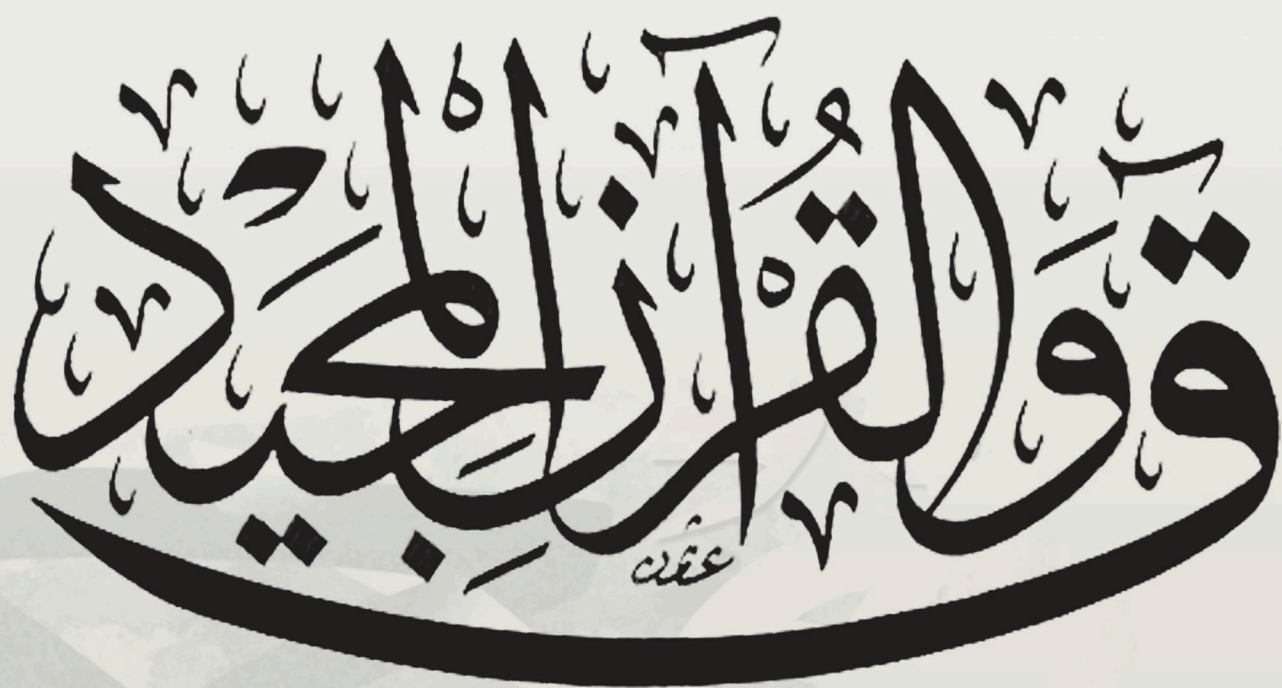 قٓ وَالْقُرْآنِ الْمَجِيْدِ